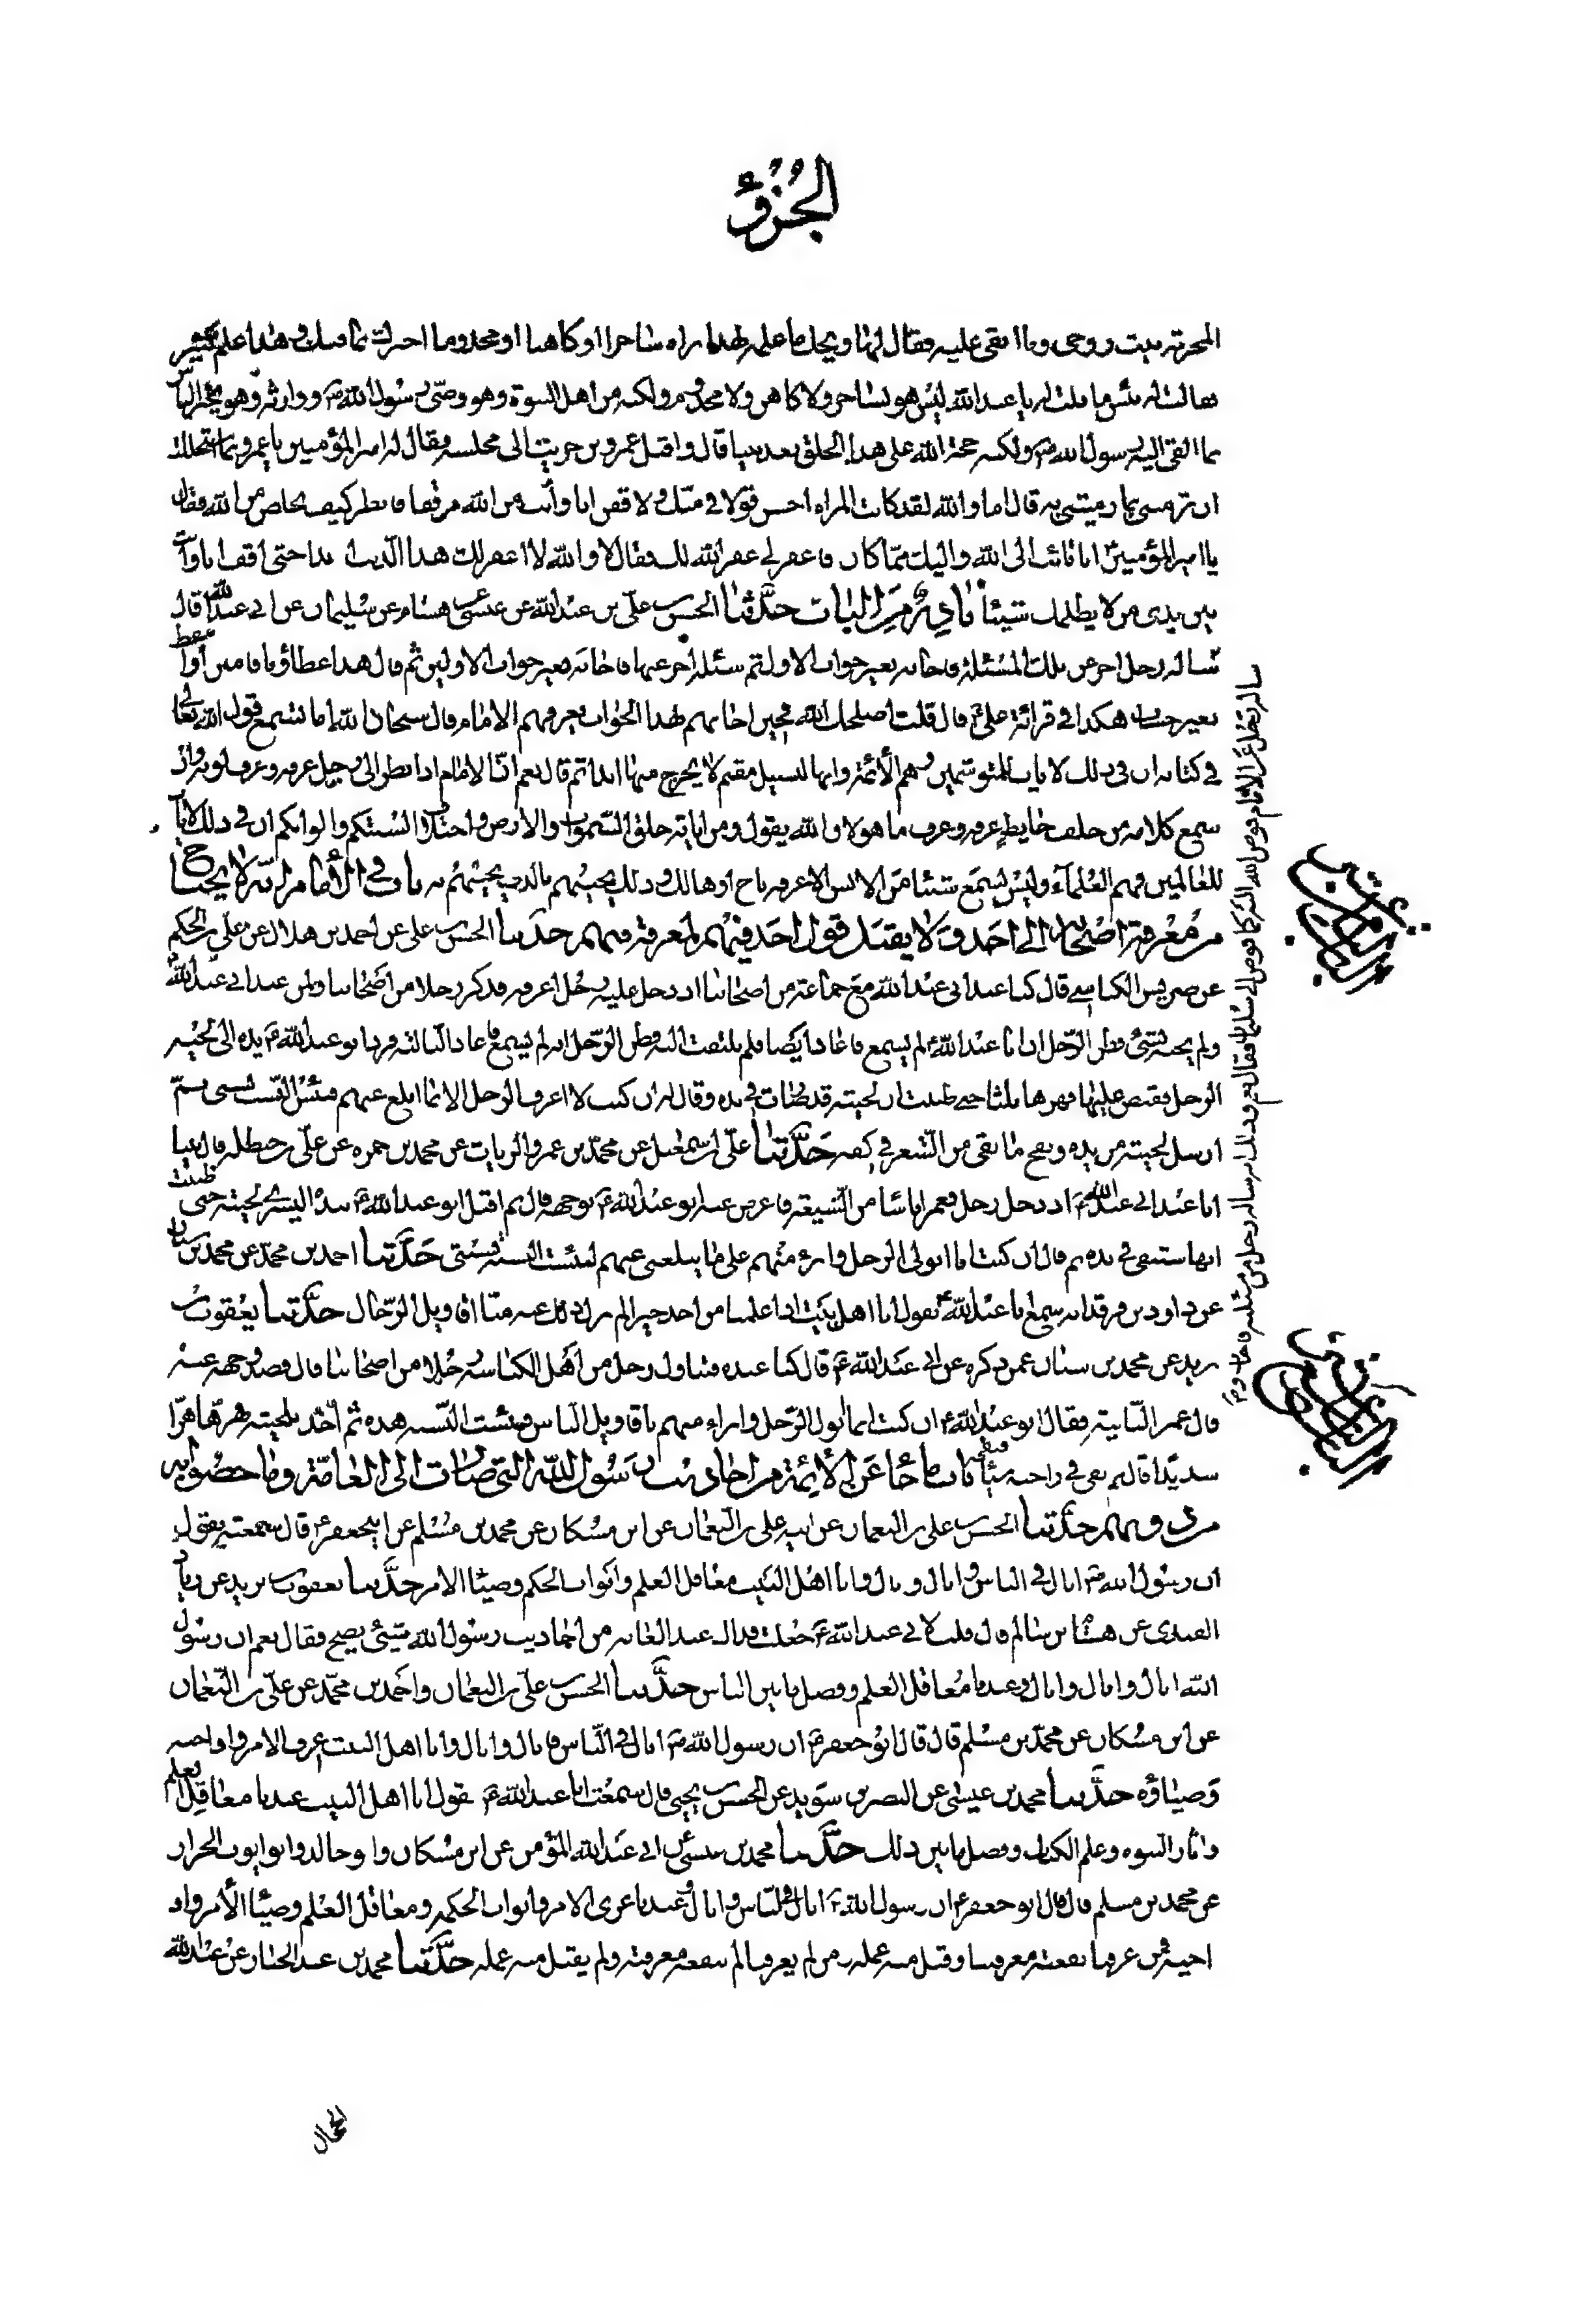 الجزؤ
فقال لها ويحك ما علمه بهذا براه ساحرا او كاهنا او مخدوما وهذا علم كثير
فقالت له بئس ما قلت له يا عبد الله ليس هو بساحر ولا كاهن ولا مخدوم ولكنه من اهل النبوة وهو وصي رسول الله ووارثه وهو يخبر الناس
بما القى اليه رسول الله ولكنه حجة الله على هذا الخلق بعد نبينا قال واقبل عمرو بن حريث الى مجلسه فقال له امير المؤمنين يا عمرو بما استحللت
ان ترميني بما رميتني به قال اما والله لقد كانت المراه احسن قولا في منك ولا قفن انا وأنت من الله موقفا فانظر كيف تخلص من الله فقال
يا امير المؤمنين انا تائب الى الله واليك مما كان فاغفر لي غفر الله لك فقال لا والله لا اغفر لك هذا الذنب ابدا حتى اقف انا وأنت
بين يدى من لا يظلمك شيئا نادر من الباب حدثنا الحسن بن علي بن عبد الله عن عيسى بن هشام عن سليمان عن ابي عبد الله قال
سأله رجل اخر عن تلك المسئلة فاجابه بغير جواب الاول ثم سئله اخر عنها فاجابه بغير جواب الاولين ثم قال هذا عطاؤنا فامنن أو اعط
بغير حساب هكذا في قرائة علي قال قلت اصلحك الله فحين اجابهم بهذا الجواب يعرفهم الامام قال سبحان الله اما تسمع قول الله تعالى
في كتابه ان في ذلك لايات للمتوسمين وهم الأئمة وانها لبسبيل مقيم لا يخرج منها ابدا ثم قال نعم ان الامام اذا نظر الى رجل عرفه وعرف لونه وان
سمع كلامه من خلف حايط عرفه وعرف ما هو لان الله يقول ومن اياته خلق السموات والارض واختلاف السنتكم والوانكم ان في ذلك لايات
للعالمين فهم العلماء وليس يسمع شيئا من الالسن الا عرفه ناج او هالك فلذلك يجيبهم بالذي يجيبهم به باب في الأئمة انه لا يحتاج
من معرفة اصحابه الى احد ولا يقبل قول احد فيهم لمعرفته فيهم حدثنا الحسن بن علي عن احمد بن هلال عن علي بن الحكم
عن ضريس الكناسي قال كنا عند ابي عبد الله مع جماعة من اصحابنا اذ دخل عليه رجل اعرفه فذكر رجلا من اصحابنا ولمزه عند ابي عبد الله
ولم يجبه بشئ فظن الرجل ان ابا عبد الله لم يسمع فاعاد ايضا فلم يلتفت اليه فظن الرجل انه لم يسمع فاعاد الثالثة فمد ابو عبد الله يده الى لحية
الرجل فقبض عليها فهزها ثلثا حتى ظننت ان لحيته قد صارت في يده وقال له ان كنت لا اعرف الرجل الا بما ابلغ عنهم فبئس النسب نسبي ثم
ارسل لحيته من يده ونفخ ما بقى من الشعر في كفه حدثنا علي بن اسمعيل عن محمد بن عمرو الزيات عن محمد بن حمزه عن علي بن حنظله قال بينا
انا عند ابي عبد الله اذ دخل رجل فغمز اناسا من الشيعة فاعرض عنه ابو عبد الله بوجهه قال ثم اقبل ابو عبد الله بيده اليسرى لحيته حتى ظننت
انها ستبقى في يده ثم قال ان كنت انما اتولى الرجل وابرء منهم على ما يبلغني عنهم لبئست النسبة نسبتي حدثنا احمد بن محمد عن محمد بن سنان
عن داود بن فرقد انه سمع ابا عبد الله يقول انا اهل بيت اذا علمنا من احد خيرا لم يزل ذلك عنه منا اقاويل الرجال حدثنا يعقوب بن
يزيد عن محمد بن سنان عمن ذكره عن ابي عبد الله قال كنا عنده فتناول رجل من اهل الكناسة رجلا من اصحابنا قال فصد بوجهه عنه
قال عمر الثانية فقال ابو عبد الله ان كنت انما اتولى الرجل وابراء منهم باقاويل الناس فبئست النسبة هذه ثم اخذ بلحيته فهزها هزا
شديدا قال ثم بقى في راحته شئ فنفخه باب ما جاء عن الأئمة من احاديث رسول الله التي صارت الى العامة وما خصوا به
من دونهم حدثنا الحسن بن علي بن النعمان عن ابيه علي بن النعمان عن ابن مسكان عن محمد بن مسلم عن ابي جعفر قال سمعته يقول
ان رسول الله انال في الناس وانال وانال وانا اهل البيت معاقل العلم وابواب الحكم وضياء الامر حدثنا يعقوب بن يزيد عن زياد
العبدى عن هشام بن سالم قال قلت لابي عبد الله جعلت فداك عند العامة من احاديث رسول الله شئ يصح فقال نعم ان رسول
الله انال وانال وانال وعندنا معاقل العلم وفصل ما بين الناس حدثنا الحسن بن علي بن النعمان واحمد بن محمد عن علي بن النعمان
عن ابن مسكان عن محمد بن مسلم قال قال ابو جعفر ان رسول الله انال في الناس وانال وانال وانا اهل البيت عرى الامر واواخيه
وضياؤه حدثنا محمد بن عيسى عن النضر بن سويد عن الحسن بن يحيى قال سمعت ابا عبد الله يقول انا اهل البيت عندنا معاقل العلم
واثار النبوه وعلم الكتاب وفصل ما بين ذلك حدثنا محمد بن عيسى عن ابي عبد الله المؤمن عن ابن مسكان وابو خالد وابو ايوب الخزاز
عن محمد بن مسلم قال قال ابو جعفر ان رسول الله انال في الناس وانال وعندنا عرى الامر وابواب الحكمه ومعاقل العلم وضياء الأمر واو
اخيه فمن عرفنا نفعته معرفتنا وقبل منه عمله ومن لم يعرفنا لم تنفعه معرفته ولم يقبل منه عمله حدثنا محمد بن عبد الجبار عن عبد الله
الحجال